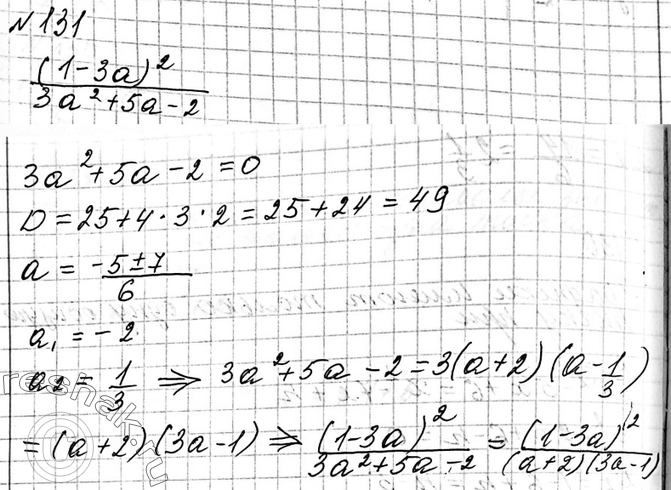 №131
(1-3a)²/(3a²+5a-2)
3a²+5a-2=0
D=25+4·3·2=25+24=49
a=(-5±7)/6
a₁=-2
a₂=1/3 ⇒ 3a²+5a-2=3(a+2)(a-1/3)
=(a+2)(3a-1) ⇒ (1-3a)²/(3a²+5a-2)=(1-3a)²/((a+2)(3a-1))